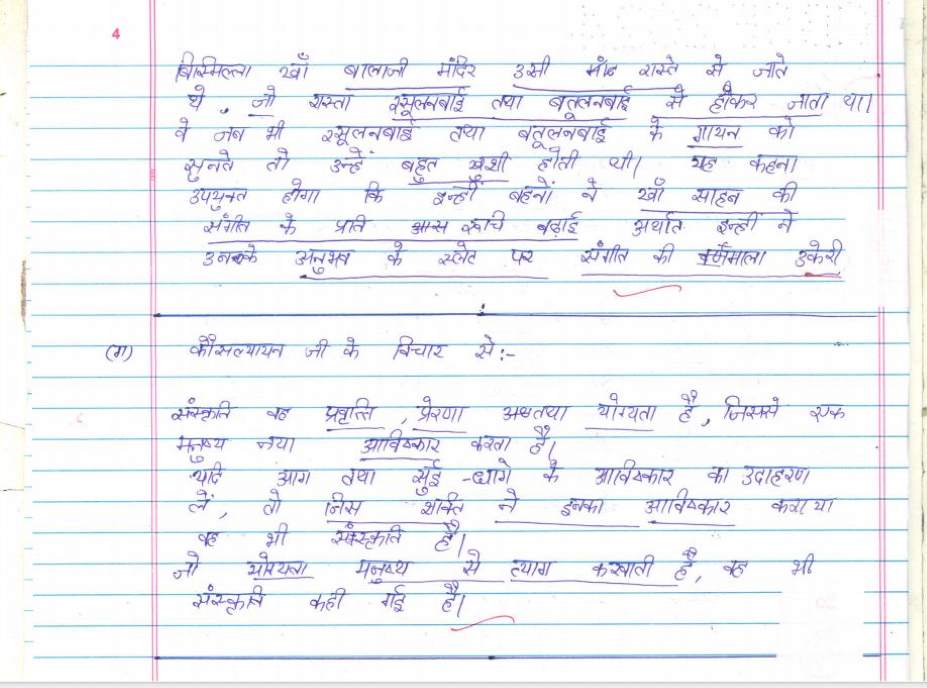 4
बिस्मिल्ला खाँ बालाजी मंदिर उसी रास्ते से जाते
थे, जो रास्ता रसूलनबाई तथा बतूलनबाई से होकर जाता था।
वे जब भी रसूलनबाई तथा बतूलनबाई के गायन को
सुनते तो उन्हें बहुत खुशी होती थी। यह कहना
उपयुक्त होगा कि इन्हीं बहनों ने खाँ साहब की
संगीत के प्रति रूचि बढ़ाई अर्थात इन्हीं ने
उनके अनुभव के स्लेट पर संगीत की वर्णमाला उकेरी
(ग) कौसल्यायन जी के विचार से:-
संस्कृति वह प्रवृत्ति, प्रेरणा तथा योग्यता है, जिससे एक
मनुष्य नया आविष्कार करता है।
यदि आग तथा सुई-धागे के आविष्कार का उदाहरण
लें, तो जिस शक्ति ने इनका आविष्कार कराया
वह भी संस्कृति है।
जो योग्यता मनुष्य से त्याग करवाती है, वह भी
संस्कृति कही गई है।